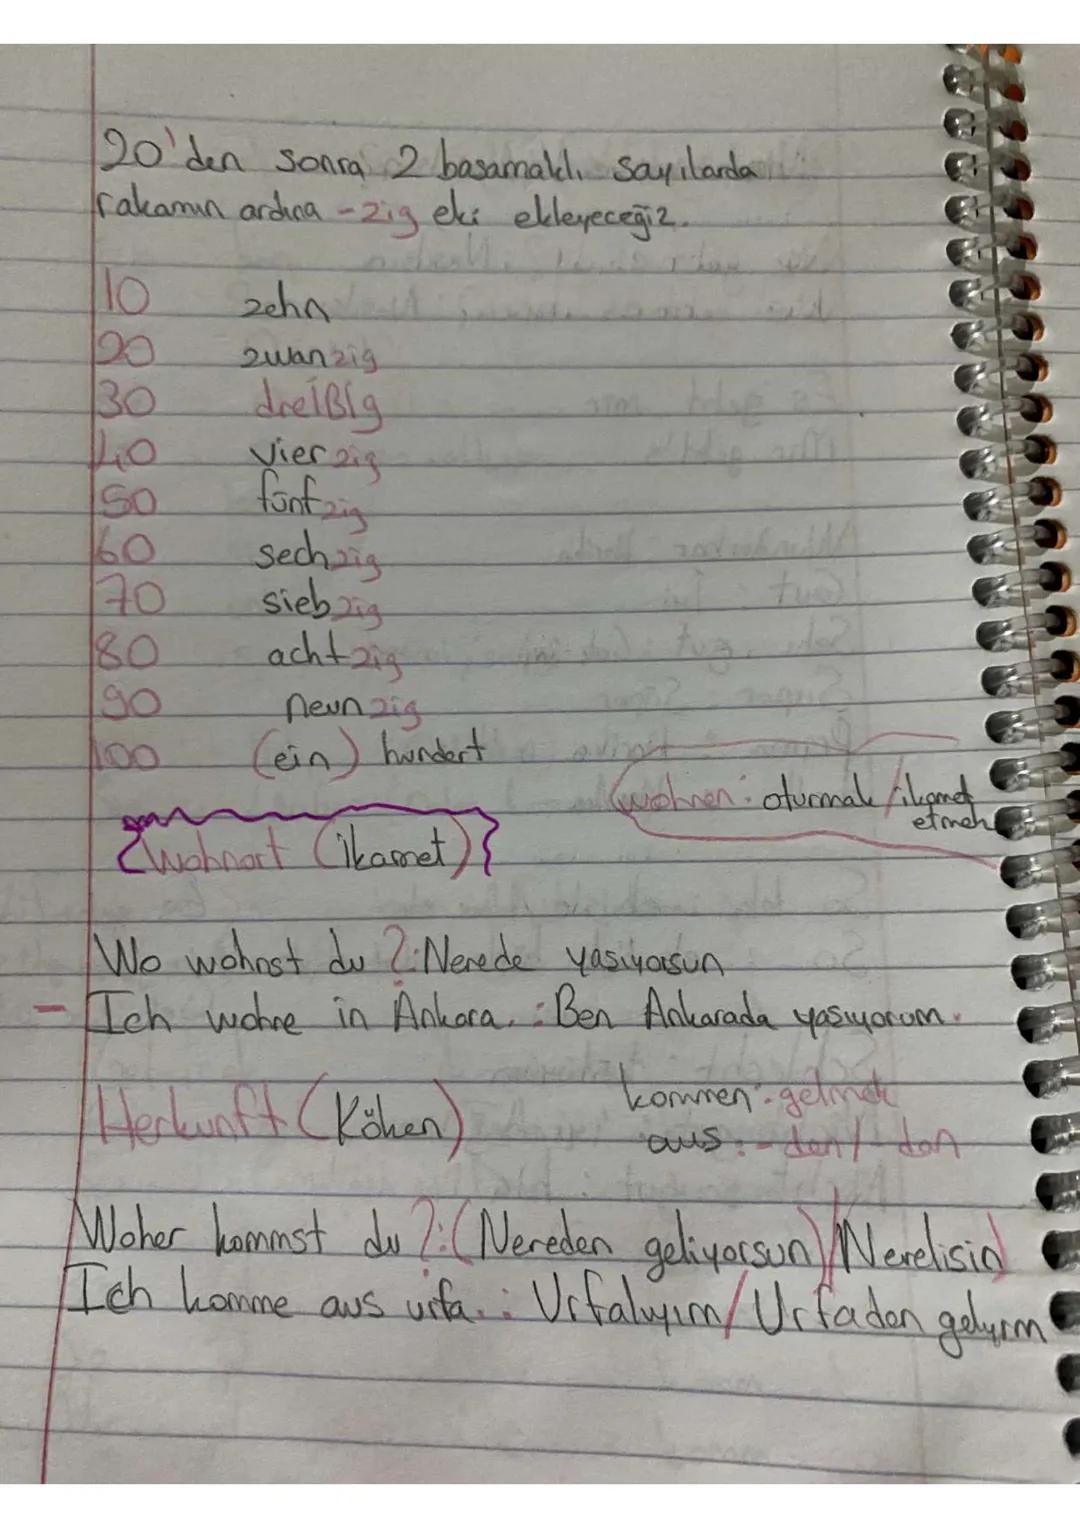 20'den sonra 2 basamaklı sayılarda
rakamın ardına -zig eki ekleyeceğiz.
10 zehn
20 zwanzig
30 dreißig
40 vierzig
50 fünfzig
60 sechzig
70 siebzig
80 achtzig
90 neunzig
100 (ein) hundert
wohnen: oturmak / ikamet
etmek
Wohnort (ikamet)
Wo wohnst du ?: Nerede yaşıyorsun
- Ich wohne in Ankara. : Ben Ankarada yaşıyorum.
Herkunft (Köken)
kommen: gelmek
aus: -den/-dan
Woher kommst du ?: (Nereden geliyorsun) / Nerelisin
Ich komme aus urfa. : Urfalıyım / Urfadan gelyrm